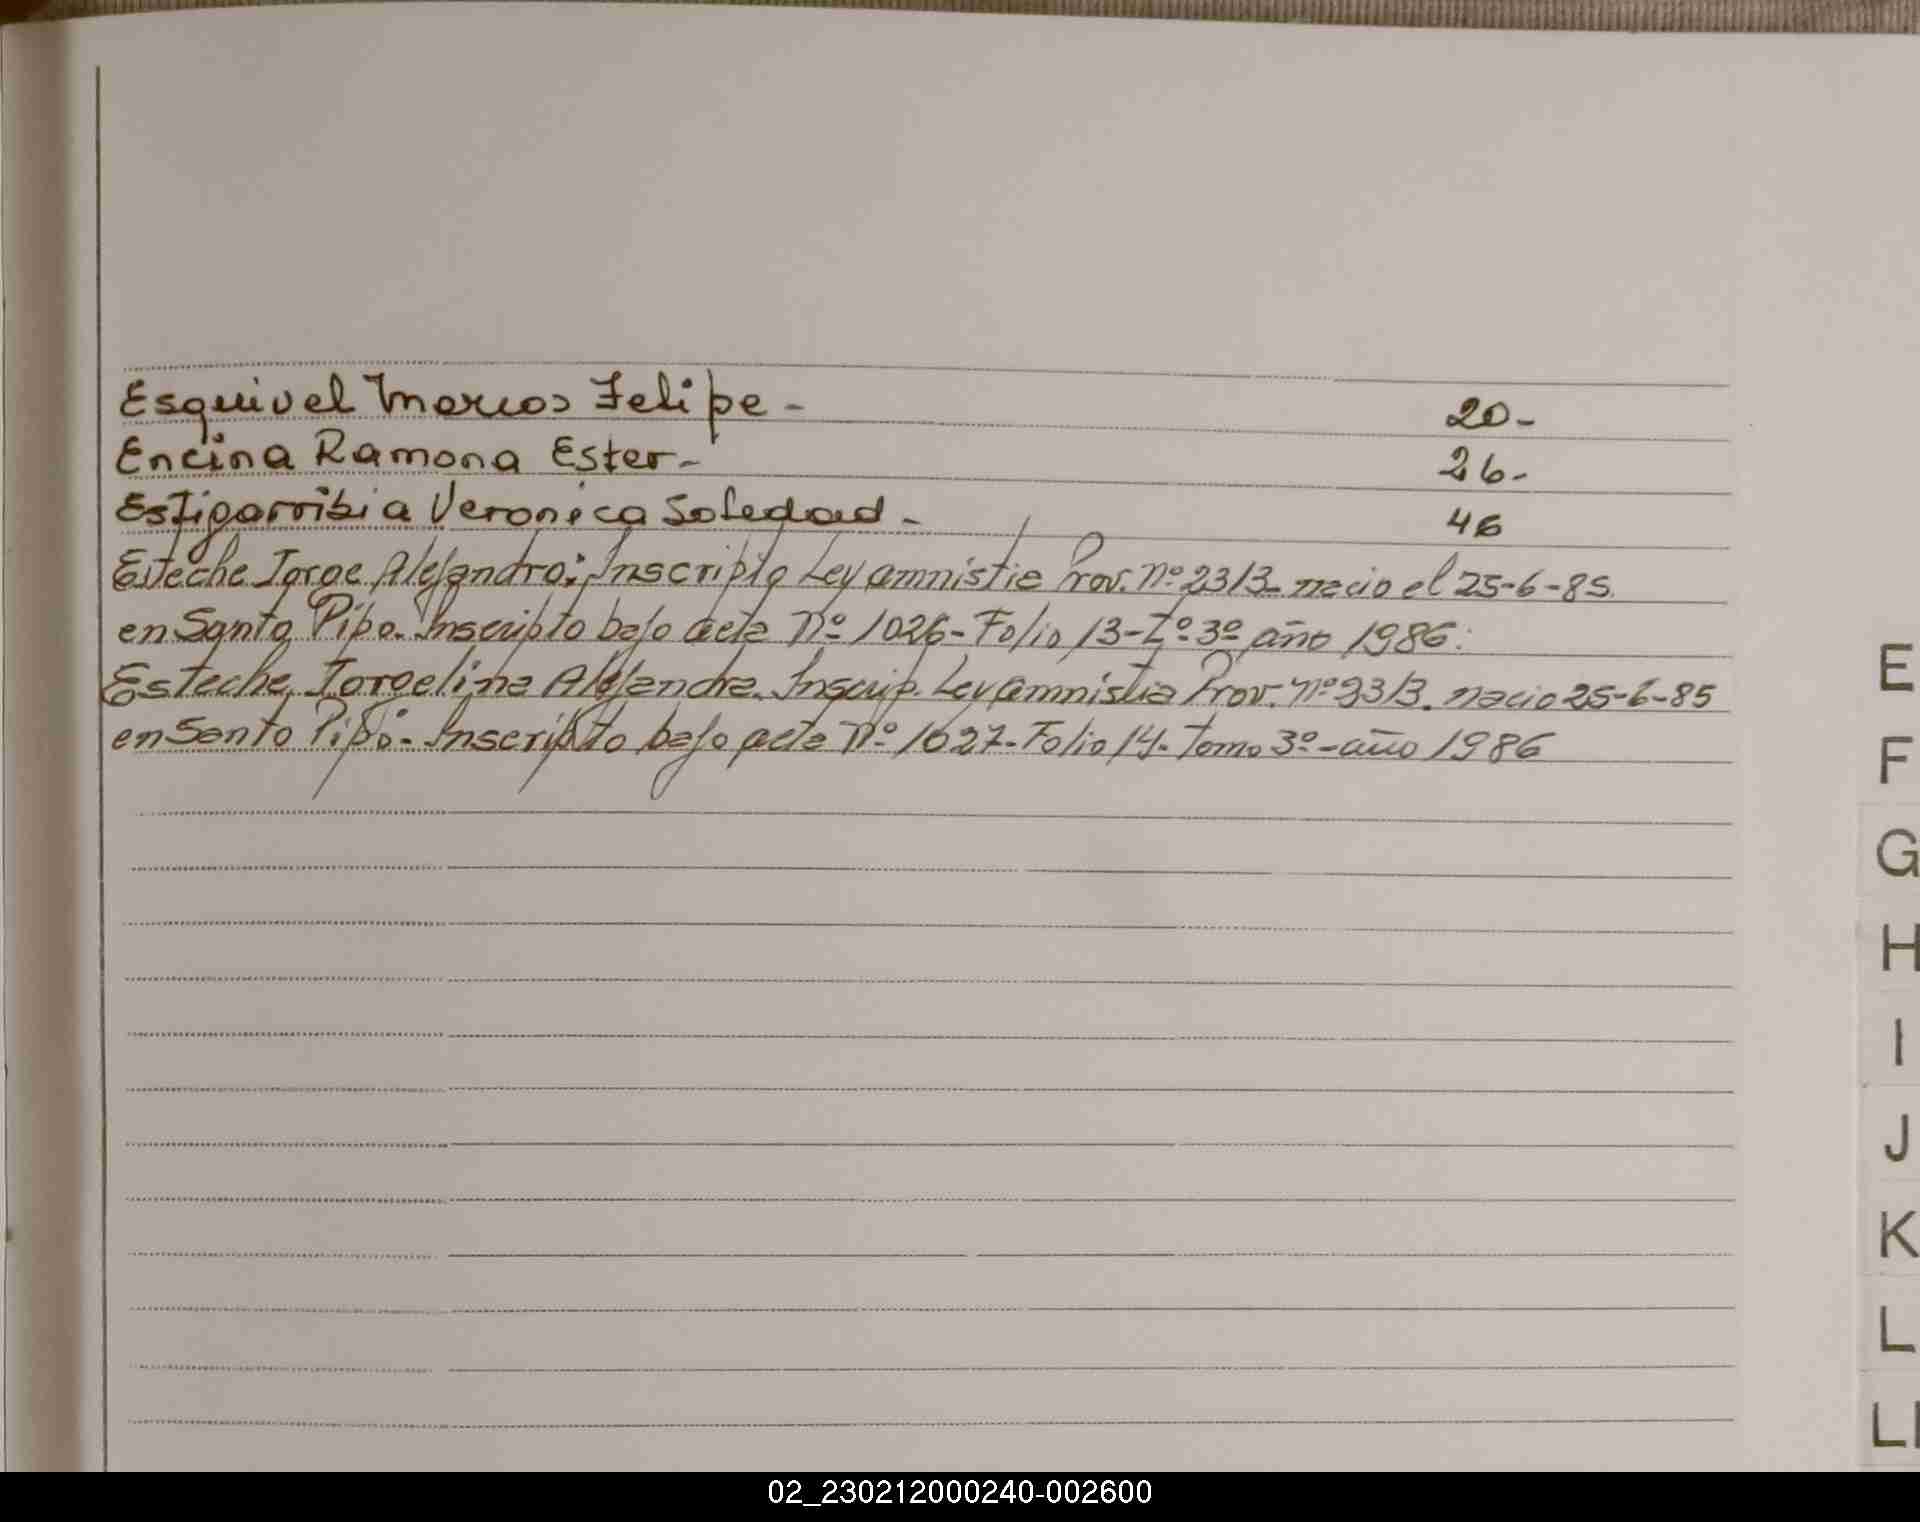 Esquivel Marcos Felipe - 20-
Encina Ramona Ester- 26-
Estigarribia Veronica Soledad - 46
Esteche Jorge Alejandro: Inscripto Ley amnistia Prov. nº 2313 nacio el 25-6-85.
en Santo Pipo. Inscripto bajo acta Nº 1026- Folio 13-Tº 3º año 1986.
Esteche Jorgelina Alejandra. Inscrip. Ley amnistia Prov. nº 2313. nacio 25-6-85
en Santo Pipó. Inscripto bajo acta Nº 1027- Folio 14. Tomo 3º-año 1986
E
F
G
H
I
J
K
L
Ll
02_230212000240-002600